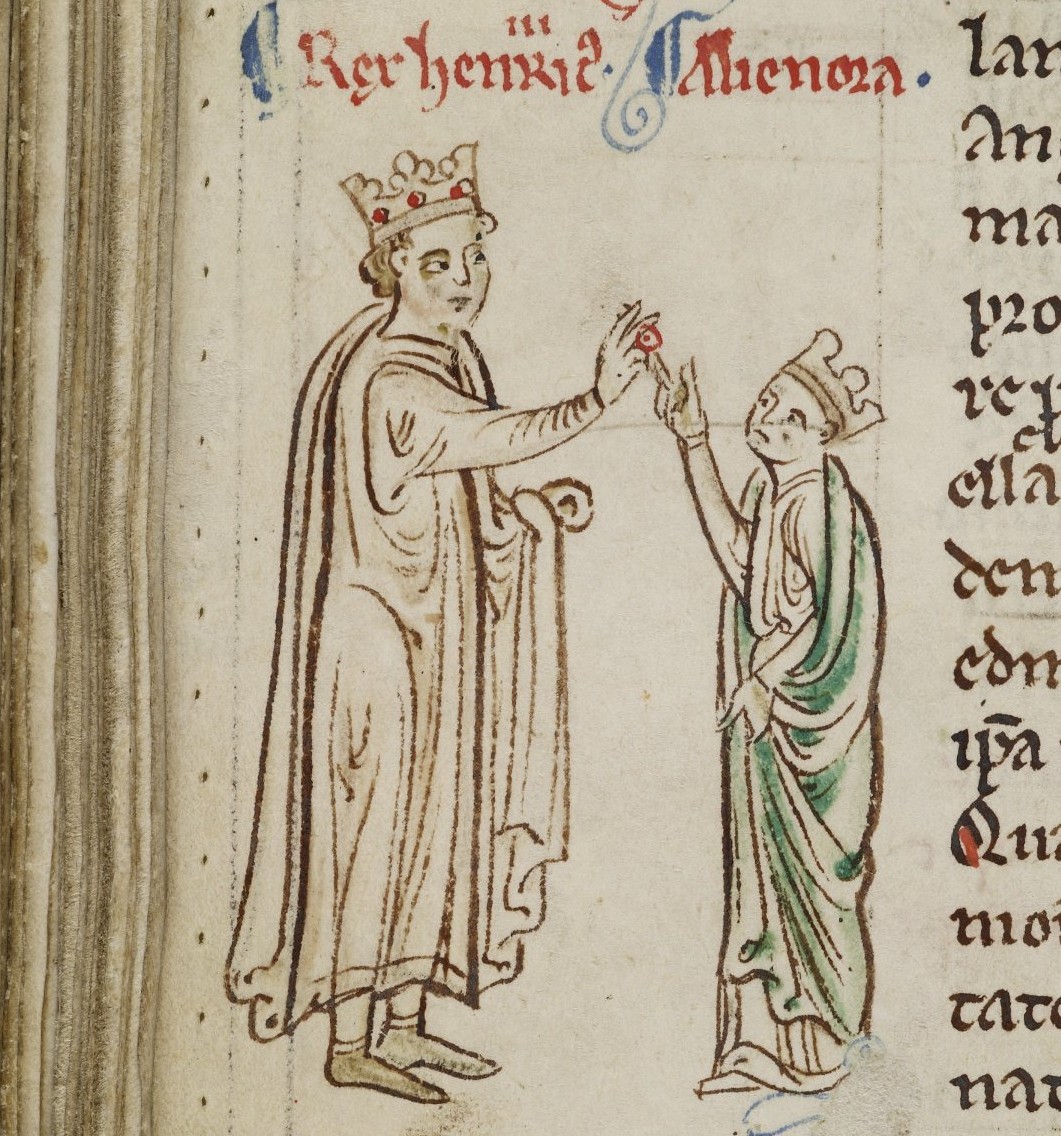 Rex henric⁹ iii · Alienora ·
lan
An
ma
pro
re p
ella
den
edm
ip̄a
Qu
mo
tat
nat